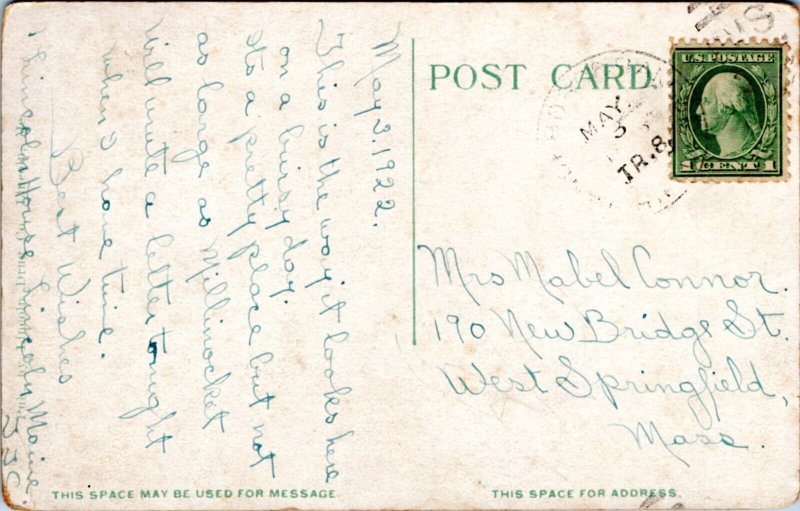 POST CARD.
U.S. POSTAGE
1 CENT 1
MAY
3
TR. 8
May 2, 1922.
This is the way it looks here
on a busy day.
Its a pretty place but not
as large as Millinocket
Will write a letter tonight
when I have time.
Best Wishes
Lincoln House Lincoln, Maine.
Mrs Mabel Connor.
190 New Bridge St.
West Springfield,
Mass.
THIS SPACE MAY BE USED FOR MESSAGE.
THIS SPACE FOR ADDRESS.